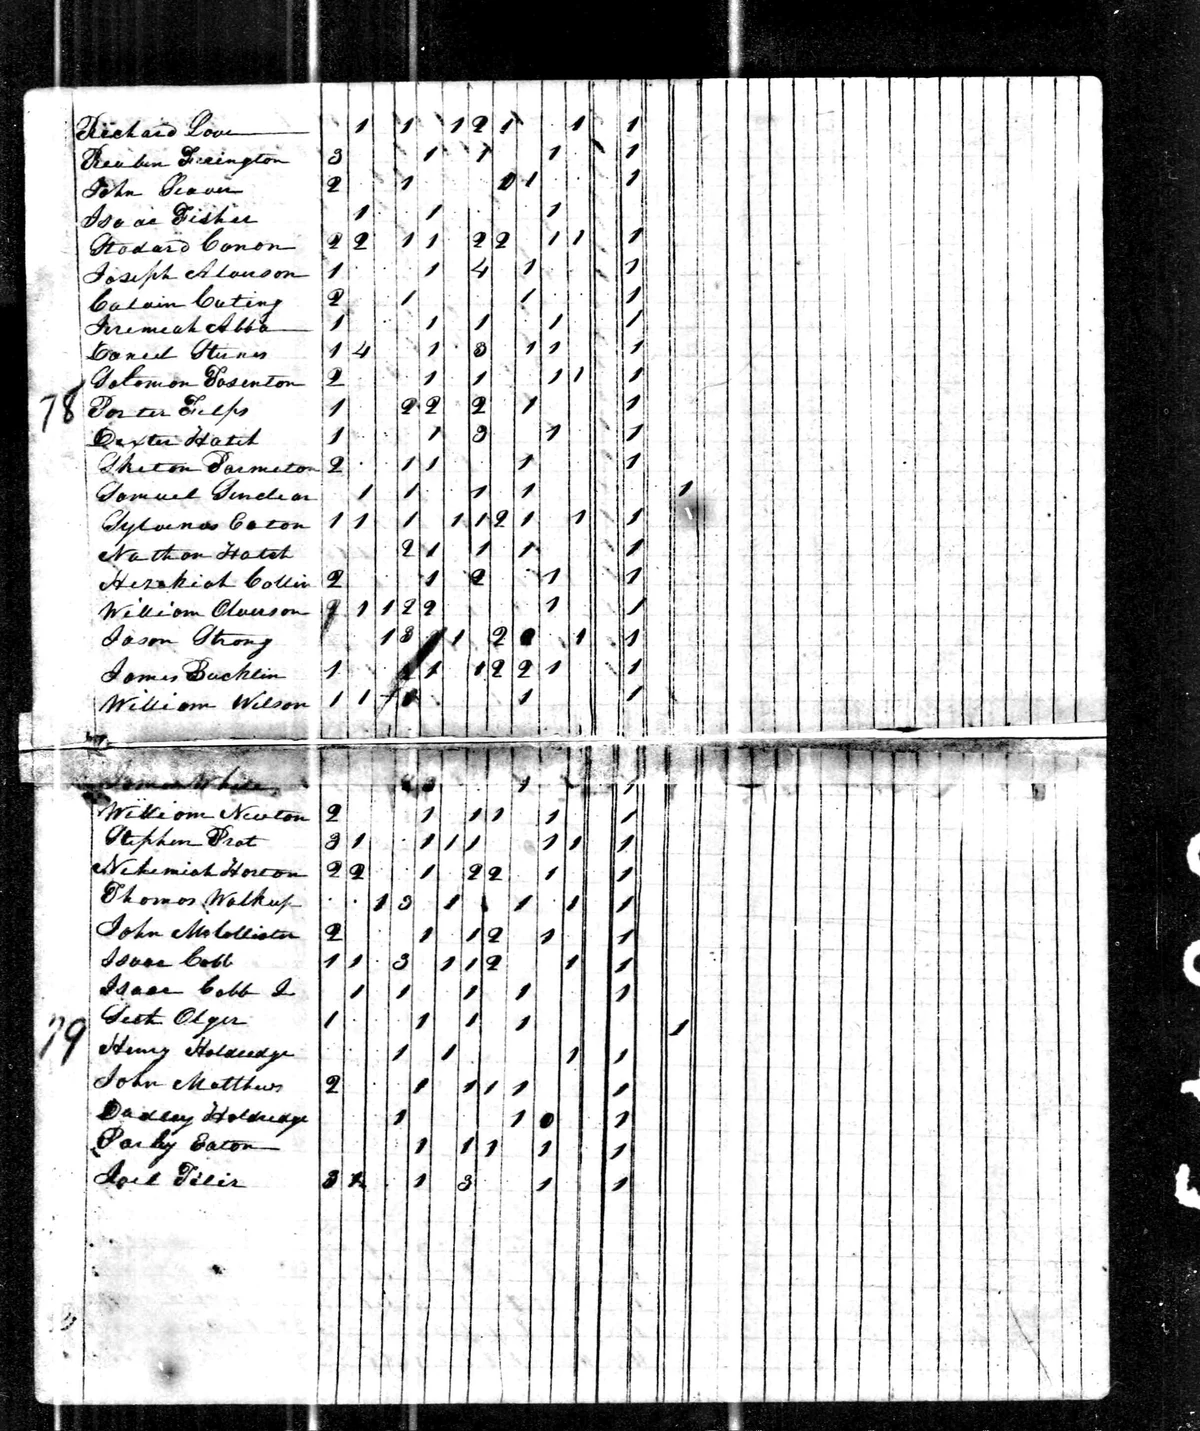 Richard Love 1 1 1 2 1 1 1
Reuben Ferington 3 1 1 1 1
John Seaver 2 1 1 1
Isaac Fisher 1 1 1
Stodard Canon 2 2 1 1 2 2 1 1 1
Joseph Alverson 1 1 4 1 1
Calvin Cuting 2 1 1 1
Jeremiah Abba 1 1 1 1 1
Daniel 1 4 1 3 1 1 1
Solomon 2 1 1 1 1 1
78 Porter Felps 1 2 2 2 1 1
Dexter Hatch 1 1 3 1 1
Parmeton 2 1 1 1 1
Samuel Sinclear 1 1 1 1 1
Sylvenas Eaton 1 1 1 1 1 2 1 1 1
Nathan Hatch 2 1 1 1 1
Hezakiah Collin 2 1 2 1 1
William Olverson 1 1 2 2 1 1
Jason Strong 1 3 1 2 1 1
James Bucklin 1 1 1 2 2 1 1
William Wilson 1 1 1 1
James White 1 1
William Newton 2 1 1 1 1 1
Stephen Prat 3 1 1 1 1 1 1 1
Nehemiah Horton 2 2 1 2 2 1 1
Thomas Walkup 1 3 1 1 1 1
John McCollister 2 1 1 2 1 1
Isaac Cobb 1 1 3 1 1 2 1 1
Isaac Cobb J 1 1 1 1 1
79 Seth Olger 1 1 1 1 1
Henry Holdredge 1 1 1 1
John Matthews 2 1 1 1 1 1
Dudley Holdredge 1 1 1
Parky Eaton 1 1 1 1 1
Joel 3 1 3 1 1